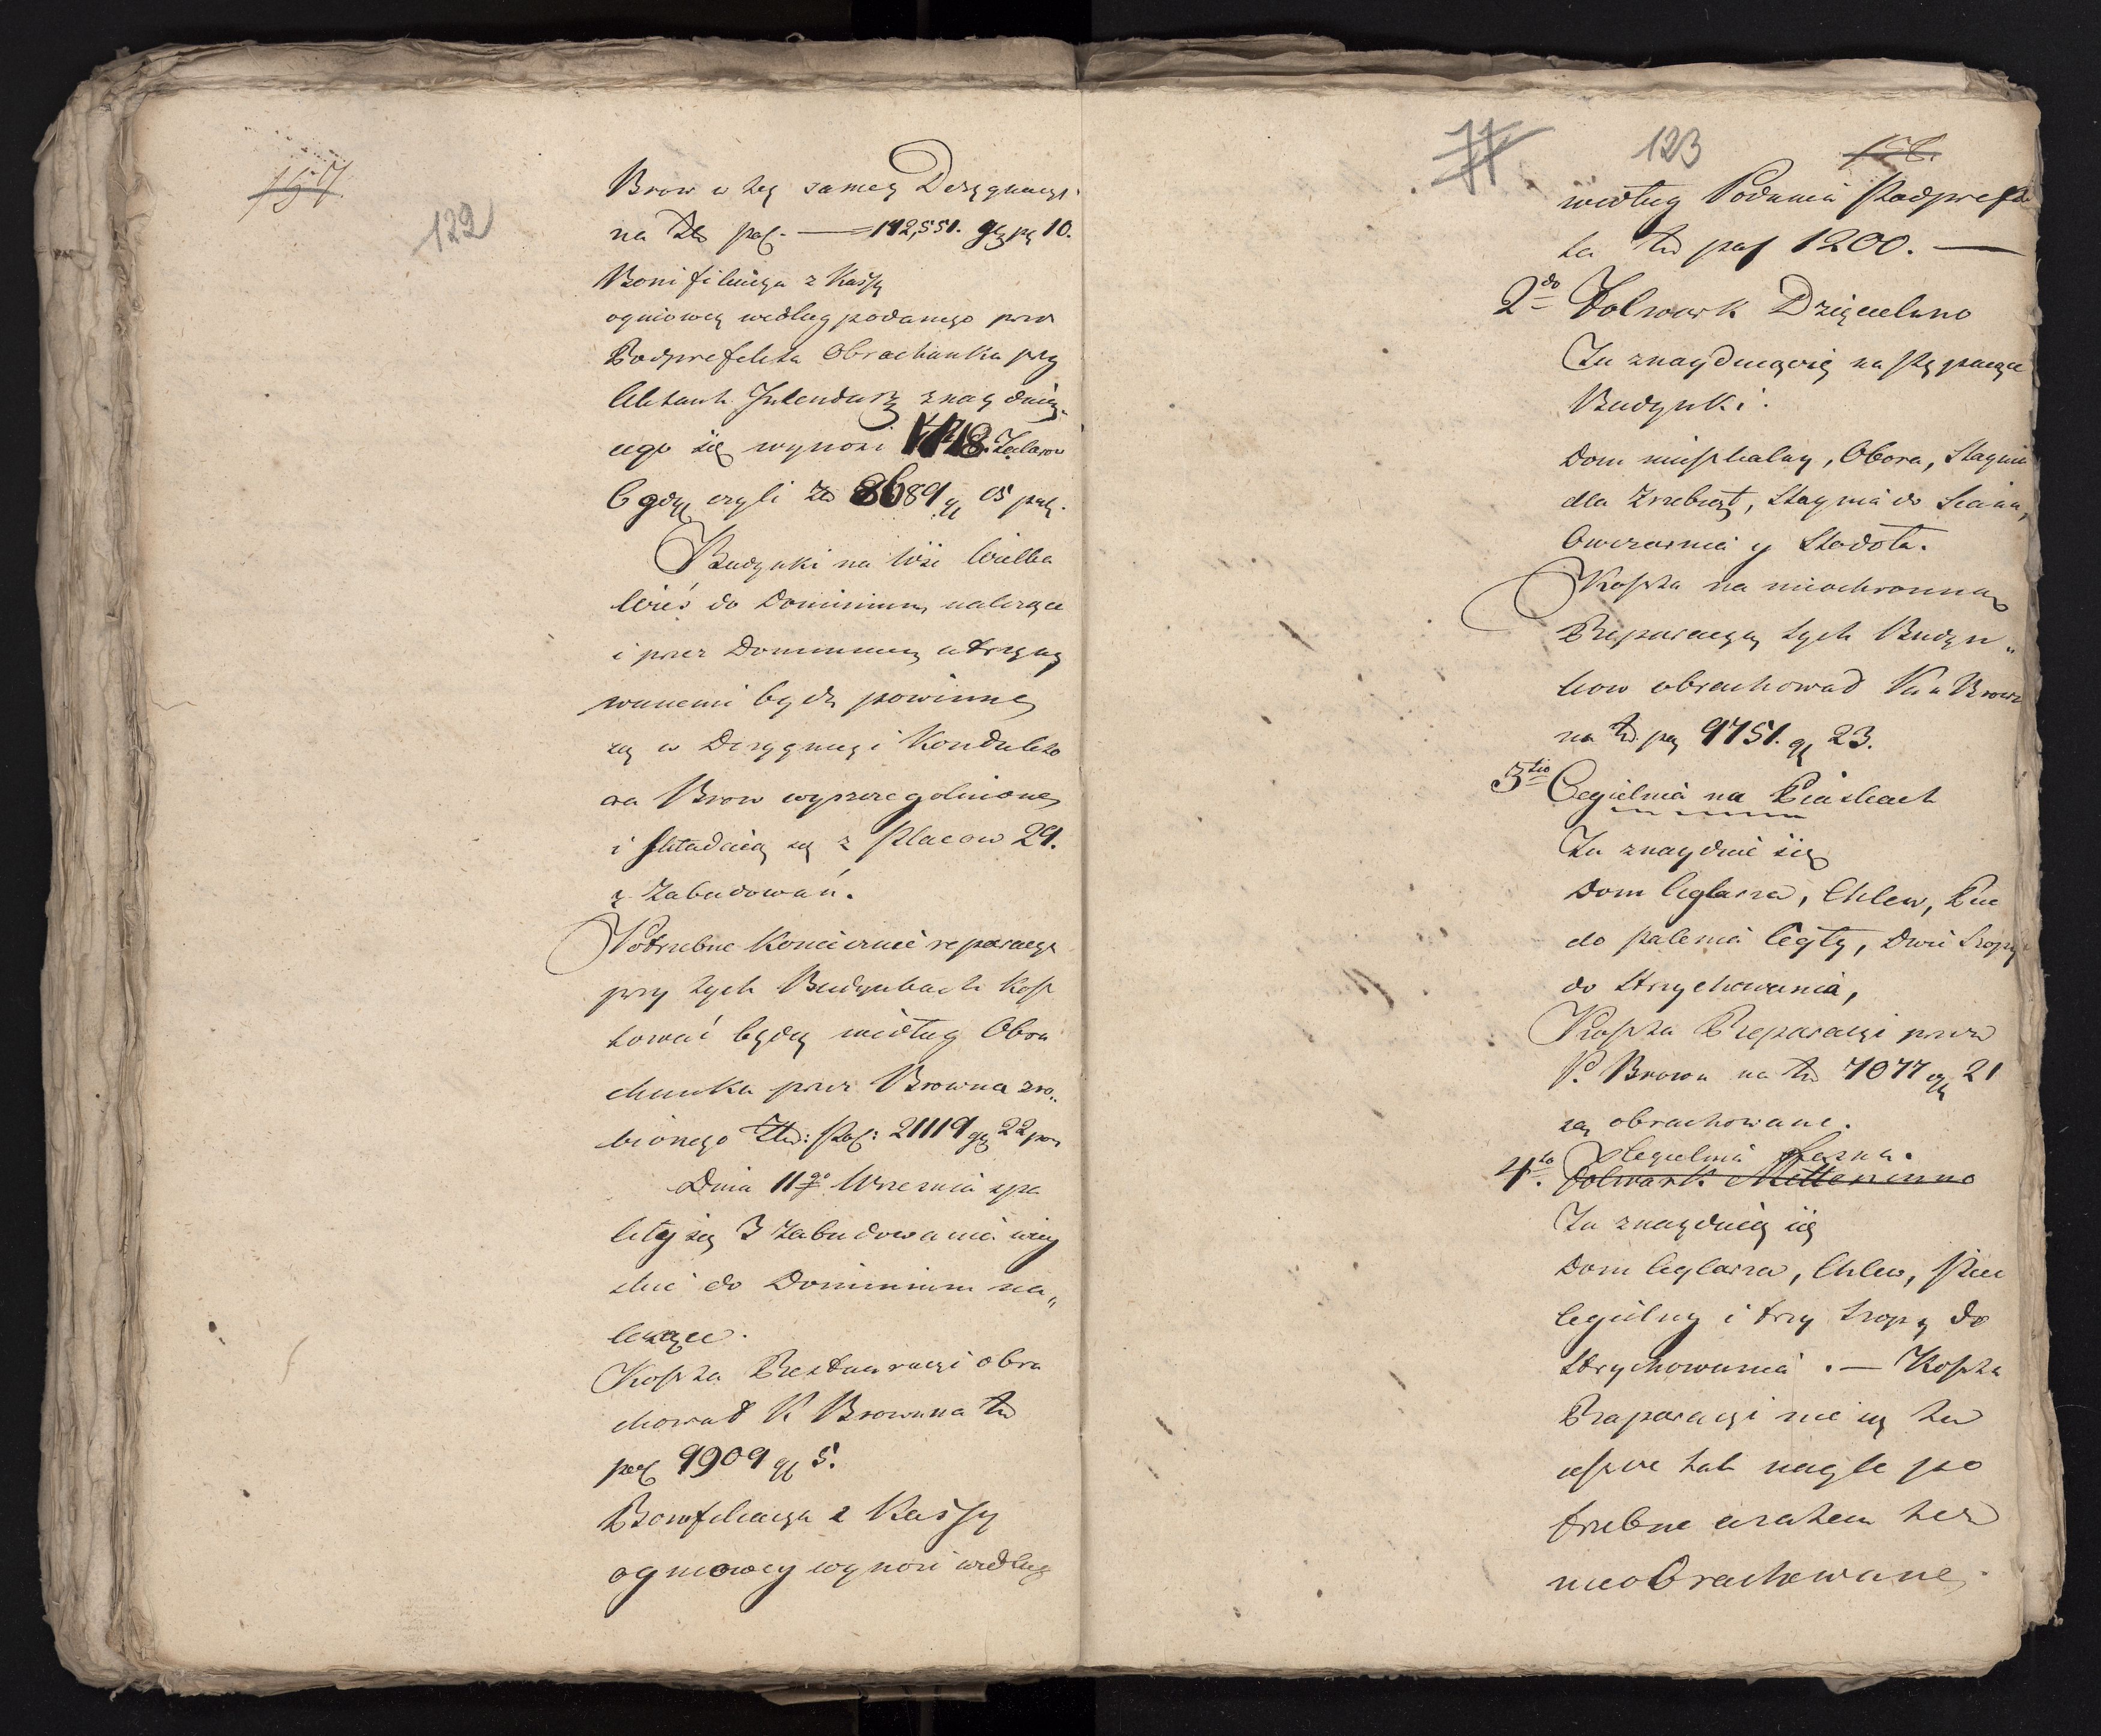 157.
122
Brow w tey samey Dezygnacyi
na Zł pol. — 112,551. gr pl 10.
Bonifikacya z Kassy
ogniowey według podanego przez
Podprefekta Obrachunku przy
Aktach Intendury znayduią-
cego się wynosi 1448. Talarow
6 gdgr czyli Zł 8689 gr 15 pol.
Budynki na Wsi Wielka
Wieś do Dominium należące
i przez Dominium utrzymy
wanemi bydź powinne
są w Dezygnacyi Kondukto
ra Brow wyszczegolnione
i składaią się z Placow 29.
z Zabudowań.
Potrzebne Koniecznie reparacye
przy tych Budynkach kosz
tować będą według Obra
chunku przez Browna zro-
bionego Złł: Pol: 21119 gr 22 pol
Dnia 11go Września spa
liły się 3 Zabudowania wiey
skie do Dominium na-
leżące.
Koszta Restauracyi obra
chował K Brown na Zł
pol 9909 gr 5.
Bonifikacya z Kassy
ogniowey wynosi według
77
123
158.
według Podania Podprefek
ta Zł pol 1200. —
2do Folwark Dzięcielino
Tu znayduią się następuiące
Budynki.
Dom mieszkalny, Obora, Staynia
dla Zrzebiąt, Staynia do Siana,
Owczarnia y Stodoła.
Koszta na nieochronną
Reparacyą tych Budyn-
kow obrachował Kon Brown
na Zł. pol 9751. gr 23.
3tio Cegielnia na Piaskach
Tu znayduie się
Dom Ceglarza, Chlew, Piec
do Palenia Cegły, Dwie Szopy
do Strychowania,
Koszta Reparacyi przez
P. Brown na Zł 7077 gr 21
są obrachowane.
Cegielnia Leśna.
4to. Folwark Mitteninno
Tu znayduią się
Dom Ceglarza, Chlew, Piec
Cegielny i trzy Szopy do
Strychowania. — Koszta
Raparacyi nie są tu
ieszcze tak nagle po
trzebne a zatem też
nieobrachowane